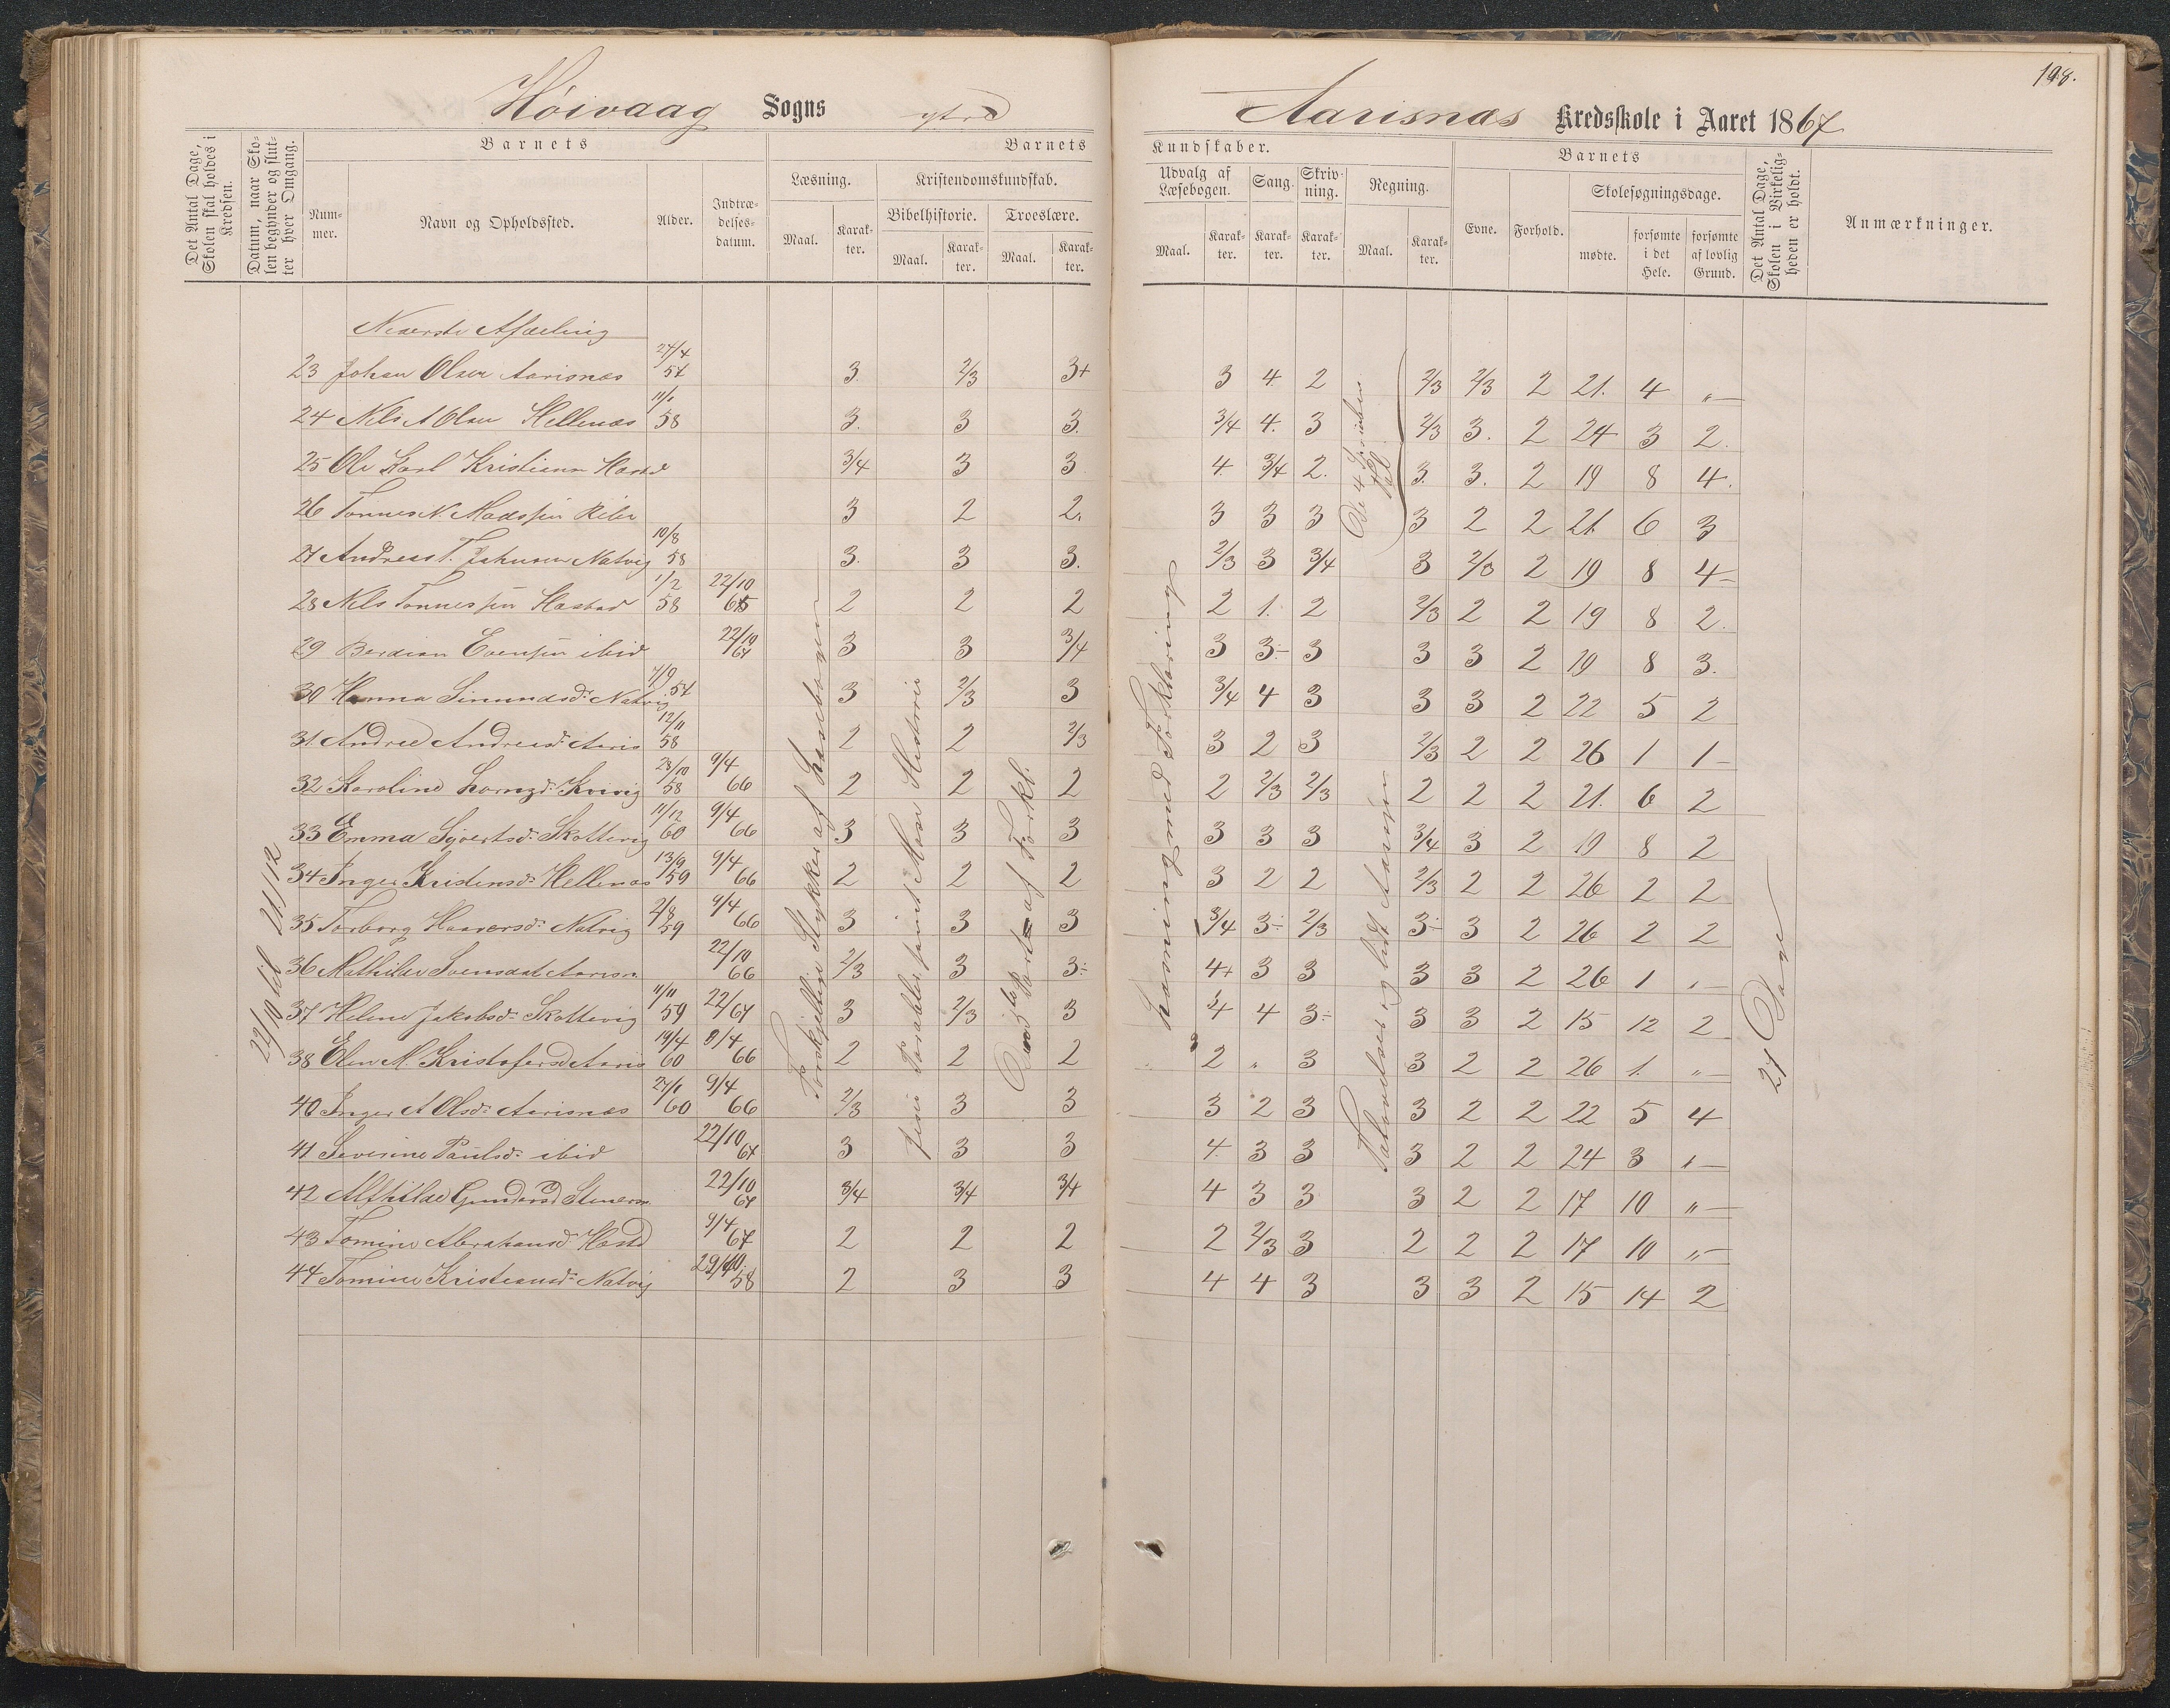 198.
Høivaag Sogns ytre Aarisnæs Kredsskole i Aaret 1867
Det Antal Dage, Skolen skal holdes i Kredsen.
Datum, naar Skolen begynder og slutter hver Omgang.
Barnets
Nummer.
Navn og Opholdssted.
Alder.
Indtrædelsesdatum.
Barnets Kundskaber.
Læsning.
Maal.
Karakter.
Kristendomskundskab.
Bibelhistorie.
Maal.
Karakter.
Troeslære.
Maal.
Karakter.
Udvalg af Læsebogen.
Maal.
Karakter.
Sang.
Karakter.
Skrivning.
Karakter.
Regning.
Maal.
Karakter.
Barnets
Evne.
Forhold.
Skolesøgningsdage.
mødte.
forsømte i det Hele.
forsømte af lovlig Grund.
Det Antal Dage, Skolen i Virkeligheden er holdt.
Anmærkninger.
22/10 til 21/12
Forskjellige Stykker af Læsebogen
Læsning med Forklaring
27 Dage
Nederste Afdeling
23 Johan Olsen Aarisnæs 27/4 57 3. 2/3 3+ 3 4. 2 2/3 2/3 2 21. 4 „
24 Nils A Olsen Hellenæs 11/1 58 3. 3 3. 3/4 4. 3 2/3 3. 2 24 3 2.
25 Ole Karl Kristiansn Hæstad 3/4 3 3 4. 3/4 2. 3. 3. 2 19 8 4.
26 Tønnes N. Madssen 3 2 2. 3 3 3 3 2 2 21. 6 3
27 Andreas T. Johnsen Natvig 10/8 58 3. 3 3. 2/3 3 3/4 3 2/3 2 19 8 4
28 Nils Tønnessen Hæstad 1/2 58 22/10 65 2 2 2 2 1. 2 2/3 2 2 19 8 2.
29 Berdian Evensen ibid 22/10 67 3 3 3/4 3 3÷ 3 3 3 2 19 8 3.
30 Hanna Simundsd. Natvig 7/9 57 3 2/3 3 3/4 4 3 3 3 2 22 5 2
31. Andrea Andreasd. Aaris 12/11 58 2 2 2/3 3 2 3 2/3 2 2 26 1 1
32 Karoline 23/10 58 9/4 66 2 2 2 2 2/3 2/3 2 2 2 21. 6 2
33 Emma Sjvertsd. Skottevig 11/12 60 9/4 66 3 3 3 3 3 3 3/4 3 2 19 8 2
34 Inger Kristensd. Hellenæs 13/9 59 9/4 66 2 2 2 3 2 2 2/3 2 2 26 2 2
35 Torborg Haaversd. Natvig 2/8 59 9/4 66 3 3 3 3/4 3÷ 2/3 3÷ 3 2 26 2 2
36 Mathilde Svensdat Aarisn 22/10 66 2/3 3 3÷ 4+ 3 3 3 3 2 26 1 „
37 Helene Jakobsd. Skottevig 11/11 59 22/67 3 2/3 3 3/4 4 3÷ 3 3 2 15 12 2
38 Elen M. Kristofersd Aaris 19/4 60 9/4 66 2 2 2 2 „ 3 3 2 2 26 1. „
40 Inger A Olsd. Aarisnæs 27/1 60 9/4 66 2/3 3 3 3 2 3 3 2 2 22 5 4
41 Severine Paulsd. ibid 22/10 67 3 3 3 4. 3 3 3 2 2 24 3 „
42 Alfhilde Gundersd 22/10 67 3/4 3/4 3/4 4 3 3 3 2 2 17 10 „
43 Tomine Abrahamsd. Hæstd 9/4 67 2 2 2 2 2/3 3 2 2 2 17 10 „
44 Tomine Kristiansd. Natvig 29/10 58 2 3 3 4 4 3 3 3 2 15 14 2